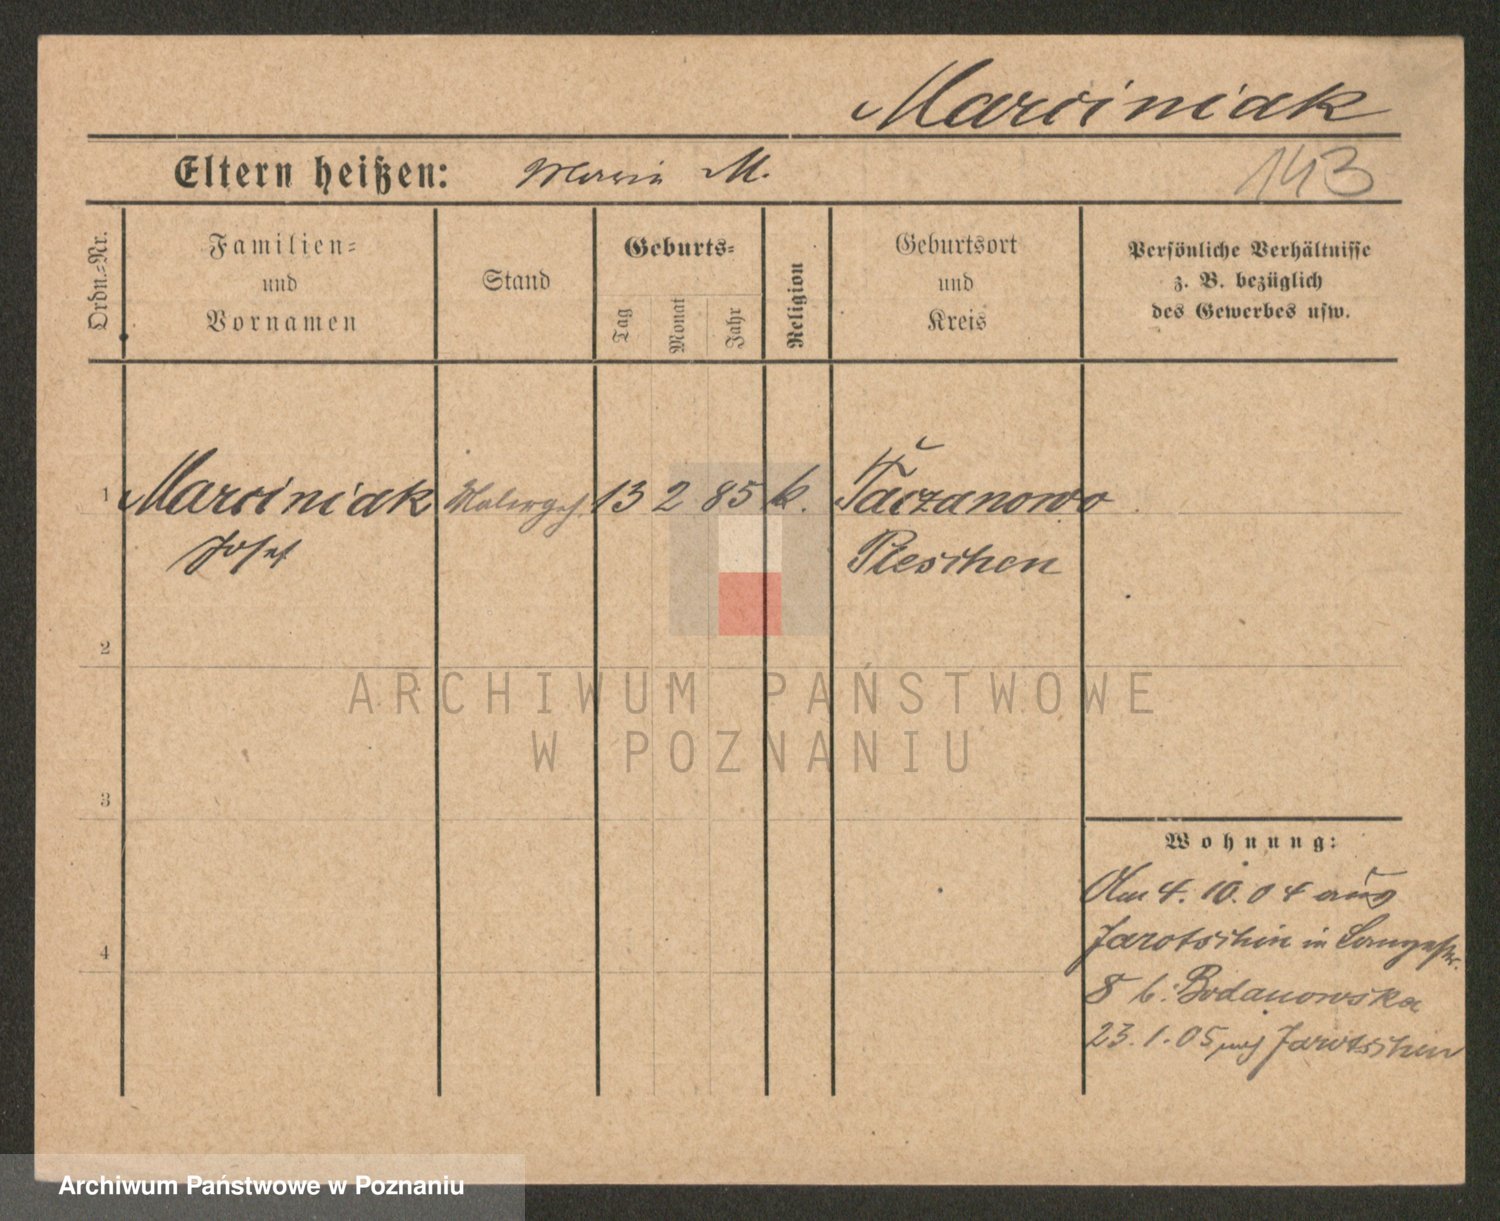 Marciniak
Eltern heißen: Maria M.
143
Ordn.=Nr.
Familien=
und
Vornamen
Stand
Geburts=
Tag
Monat
Jahr
Religion
Geburtsort
und
Kreis
Persönliche Verhältnisse
z. B. bezüglich
des Gewerbes usw.
1 Marciniak Malergeh. 13 2 85 k. Taczanowo
Josef Pleschen
2
3
4
Wohnung:
Am 4. 10. 04 aus
Jarotschin in Langestr.
8 b. Bodanowska
23. 1. 05 nach Jarotschin
ARCHIWUM PAŃSTWOWE
W POZNANIU
Archiwum Państwowe w Poznaniu